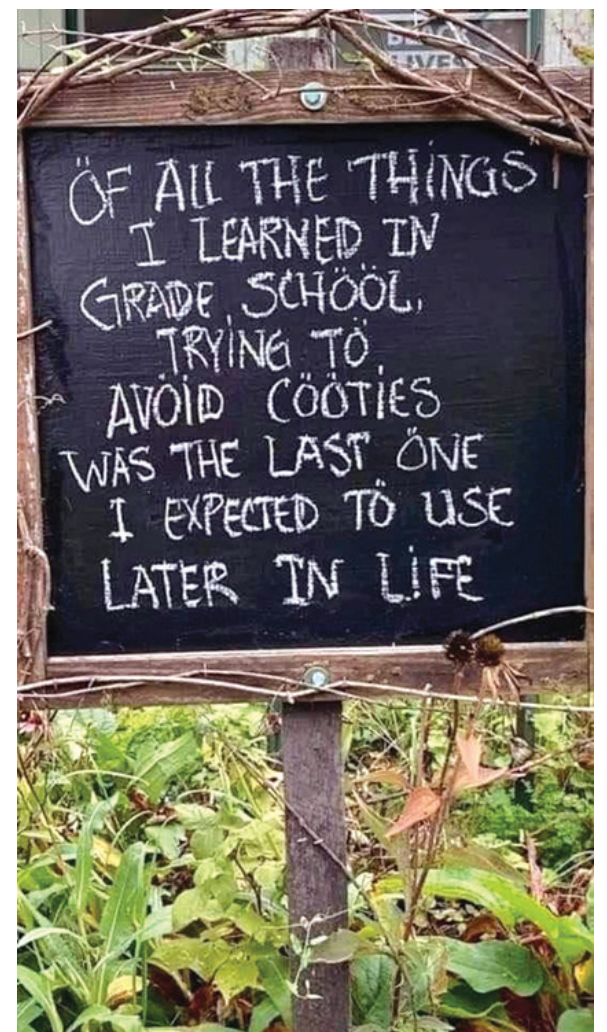 BLACK
LIVES
ÖF ALL THE THiNGS
I LEARNED IN
GRADE SCHÖÖL,
TRYiNG TÖ
AVÖiD CÖÖTiES
WAS THE LAST ÖNE
I EXPECTED TÖ USE
LATER IN LiFE